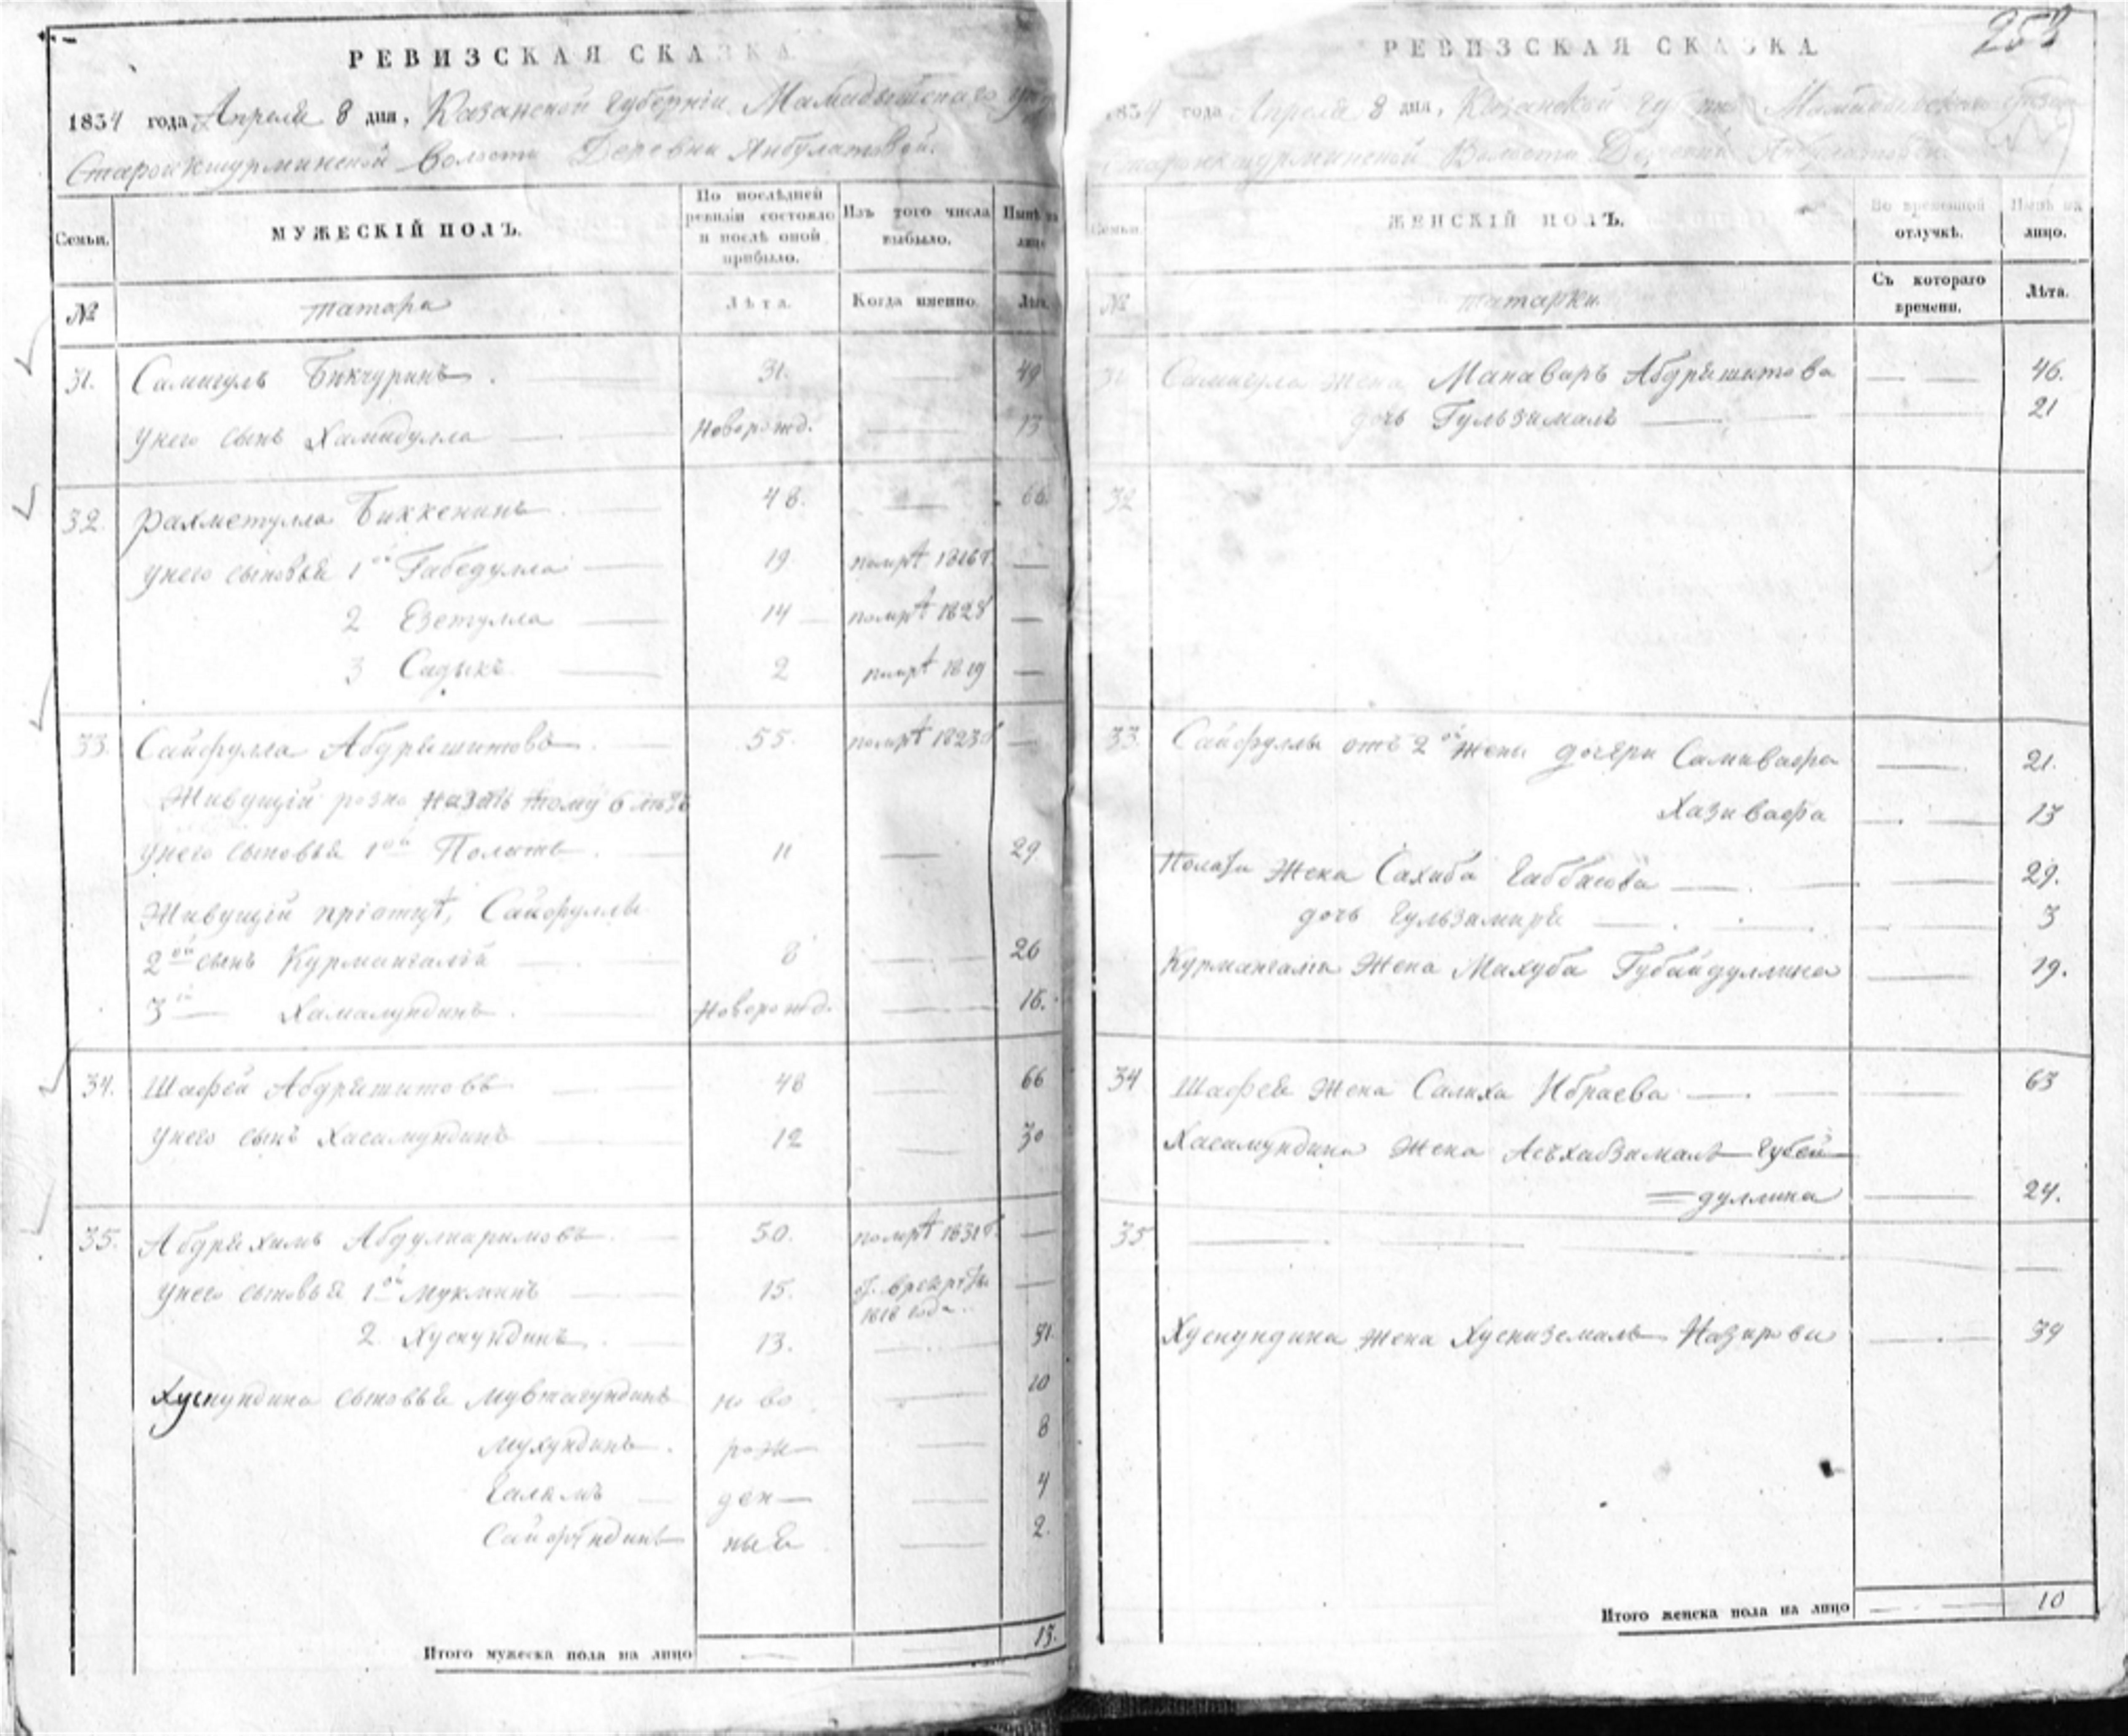 РЕВИЗСКАЯ СКАЗКА
1834 года Апреля 8 дня, Казанской Губернiи Мамадышскаго
Волости Деревни Янбулатовой.
Семьи.
МУЖЕСКІЙ ПОЛЪ.
По послѣдней ревизіи состояло и послѣ оной прибыло.
Изъ того числа выбыло.
Нынѣ на лицо
№
татара
Лѣта.
Когда именно.
Лѣта.
31. Самигулъ Бикчуринъ. 31. — 49
у него сынъ Хамидулла — Новорожд. — 13
32. Рахметулла Биккенинъ. 48. — 66
у него сыновья 1ой Габедулла — 19. помрѣ 1816 г. —
2 Езетулла — 14 помрѣ 1828 —
3 Садыкъ — 2 помрѣ 1819 —
33. Сайфулла Абдряшитовъ. 55. помрѣ 1823 —
Живущій розно назатъ тому 6 летъ
у него сыновья 1ой Полатъ. 11 — 29
Живущій при отцѣ, Сайфуллы
2ой сынъ Курмангалѣй — 8 — 26
3й — Камалундинъ. Новорожд. — 16.
34. Шафей Абдряшитовъ — 48 — 66
у него сынъ Хасамундинъ — 12 — 30
35. Абдряхимъ Абдулкаримовъ. 50. помрѣ 1831 г. —
у него сыновья 1ой Мукминъ — 15. —
1818 года.
2. Хуснундинъ. 13. — 31.
Хуснундина сыновья Мувтагундинъ но во — 10
Мухундинъ. рож — 8
Галимъ — ден — 4
Сайфѣндинъ ныя — 2.
Итого мужеска пола на лицо — — 13.
253
РЕВИЗСКАЯ СКАЗКА
1834 года Апреля 8 дня, Казанской
Волости Деревни Янбулатовой.
Семьи.
ЖЕНСКІЙ ПОЛЪ.
Во временной отлучкѣ.
Нынѣ на лицо.
№
татарки
Съ котораго времени.
Лѣта.
31 Самигула жена Манаваръ Абдряшитова — — 46.
дочь Гульзималъ — — 21
32
33. Сайфуллы отъ 2ой жены дочери Самивафа — 21.
Хазивафа — 13
Полата жена Сахиба Габбасова — — 29.
дочь Гульзимиря — — 3
Курмангалия жена Махуба Губайдуллина — 19.
34 Шафея жена Салиха Ибраева — — 63
Хасамундина жена Асъхабзамалъ Губей
=дуллина — 24.
35 — — — —
Хуснундина жена Хуснизималъ Назирова — 39
Итого женска пола на лицо — — 10